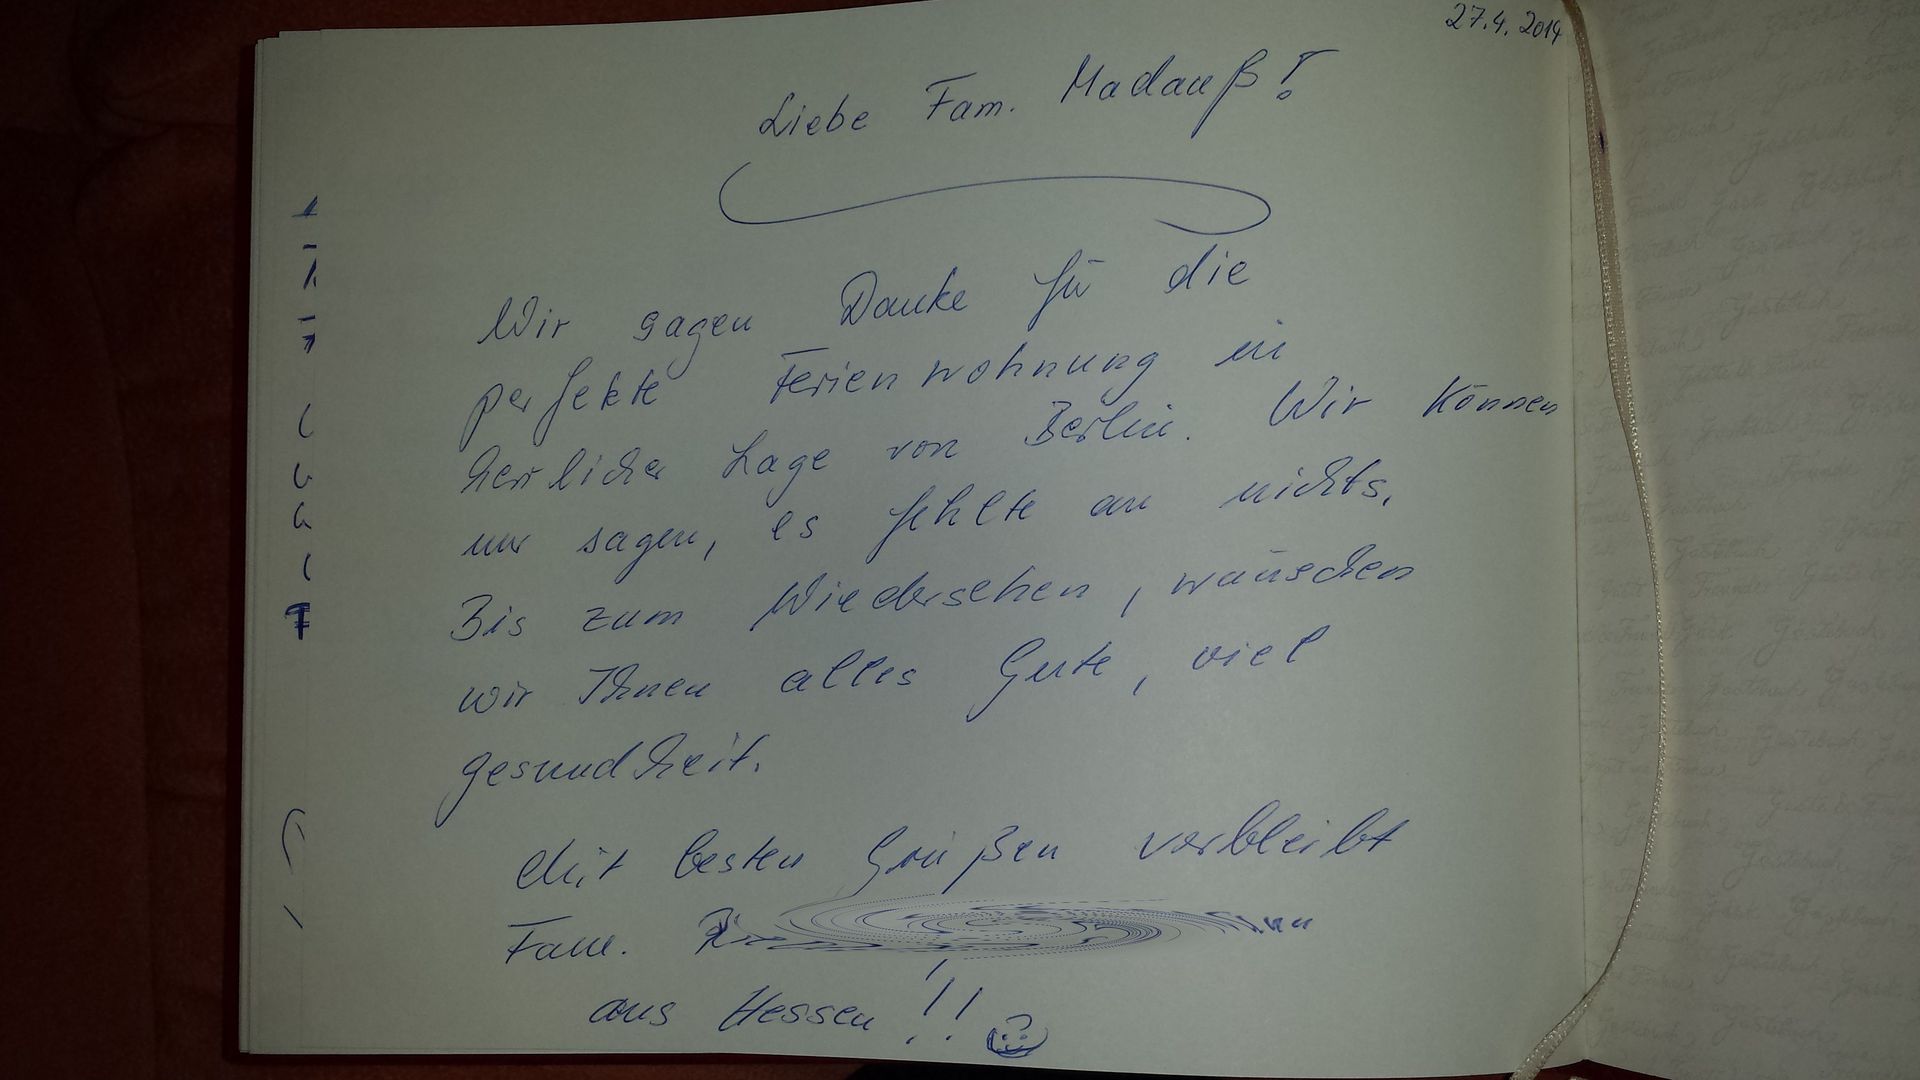 27.4.2014
Liebe Fam. Madauß!
Wir sagen Danke für die
perfekte Ferienwohnung in
herrlicher Lage von Berlin. Wir können
nur sagen, es fehlte an nichts.
Bis zum Wiedersehen, wünschen
wir Ihnen alles Gute, viel
gesundheit.
Mit besten Grüßen verbleibt
Fam.
aus Hessen!!